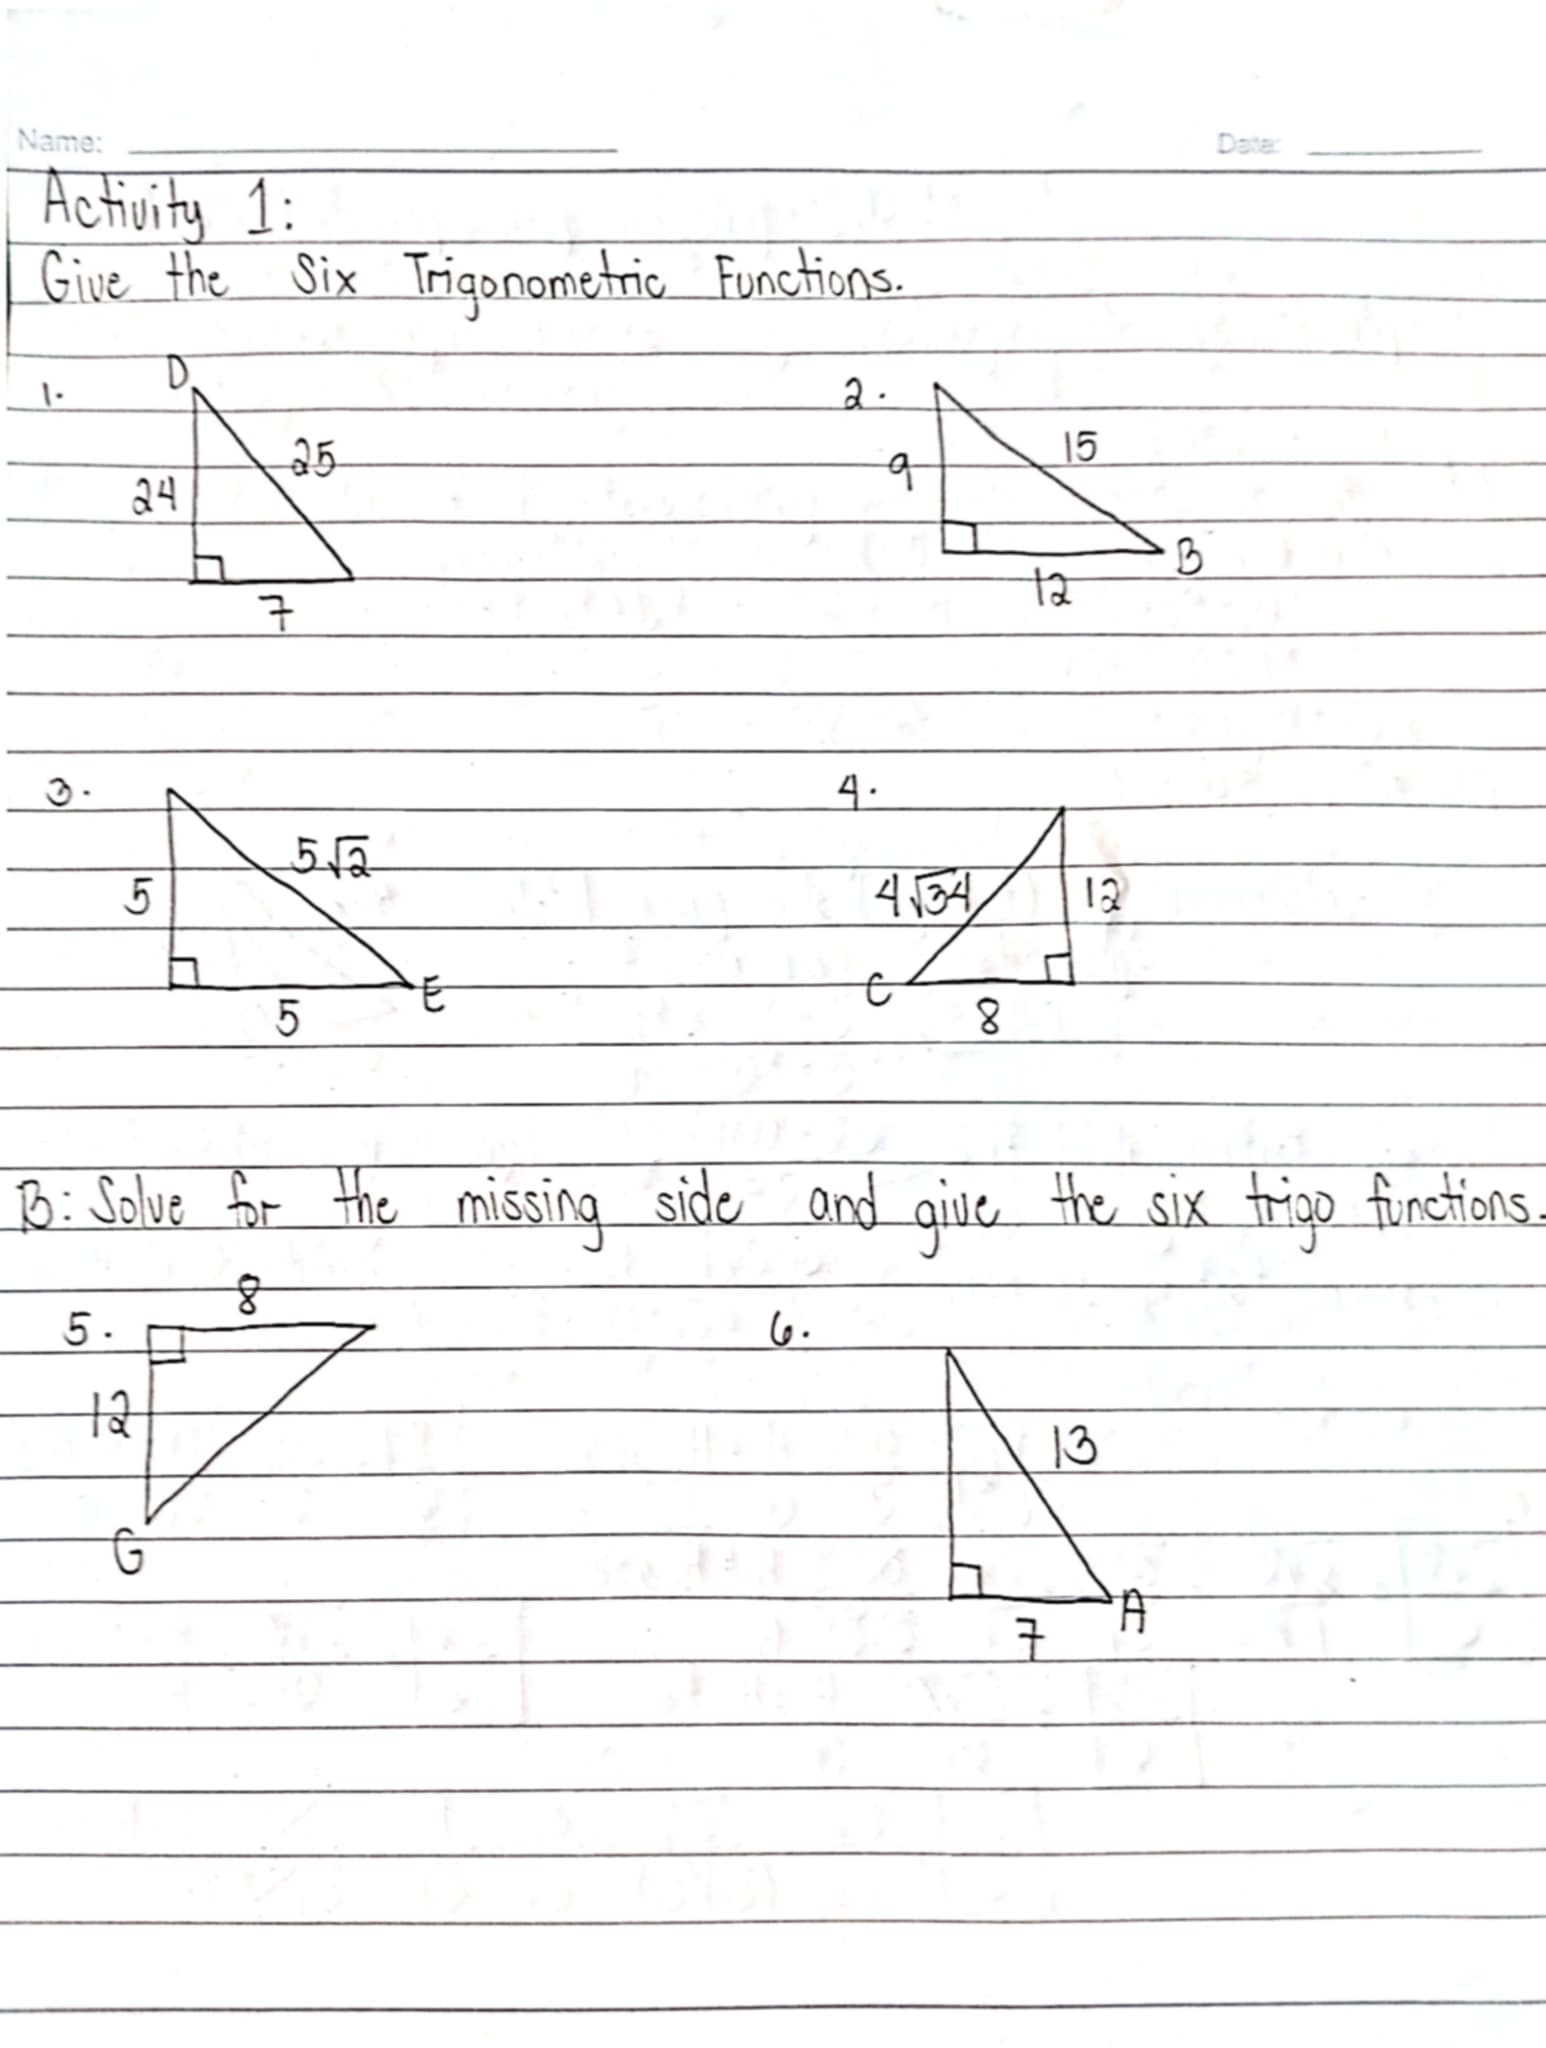 Name: Date:
Activity 1:
Give the Six Trigonometric Functions.
1. D 2.
25 15
24 9
B
7 12
3. 4.
5√2
5 4√34 12
E C
5 8
B: Solve for the missing side and give the six trigo functions.
8
5. 6.
12
13
G
A
7